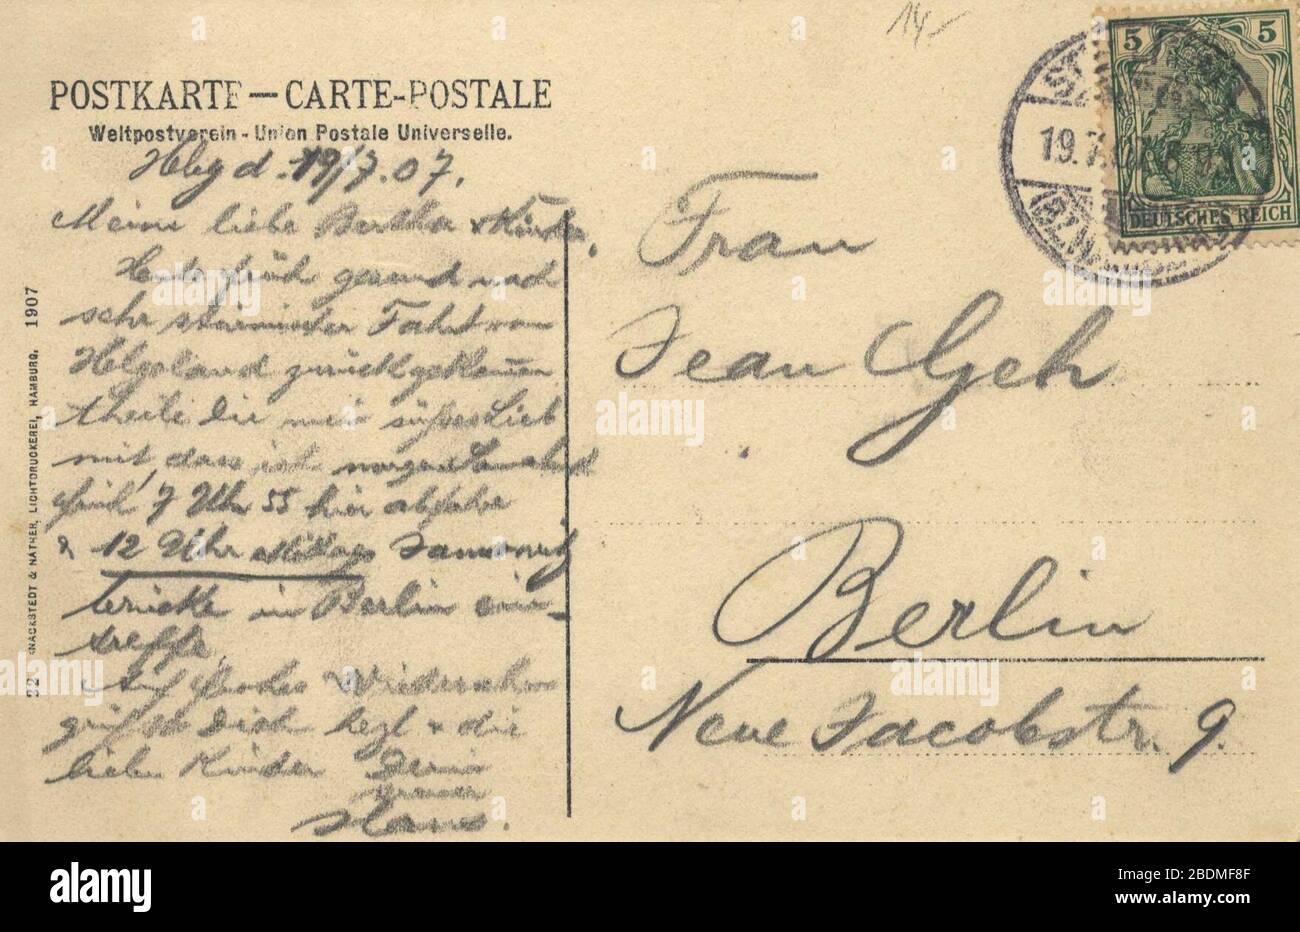 14,-
POSTKARTE — CARTE-POSTALE
Weltpostverein - Union Postale Universelle.
19/7.07.
Meine liebe Bertha & Kinder,
Heute früh gesund nach
sehr stürmischer Fahrt von
Helgoland zurückgekommen
theile Dir mein süsses Lieb
mit, dass ich morgen
früh 7 Uhr 55 hier abfahre
& 12 Uhr Mittags
in Berlin ein-
treffe.
Auf frohes Wiedersehn
grüsst Dich herzl. & die
lieben Kinder Dein
Hans.
Frau
Jean Geh
Berlin
Neue Jacobstr. 9.
5 5
DEUTSCHES REICH
19.7.07
22 KNACKSTEDT & NÄTHER, LICHTDRUCKEREI, HAMBURG. 1907
alamy
Image ID: 2BDMF8F
www.alamy.com